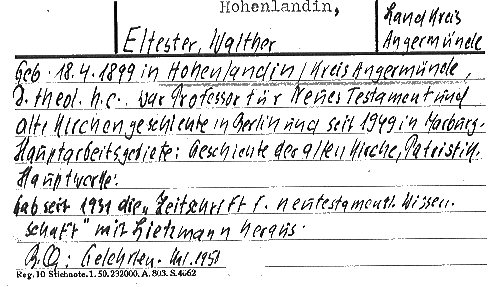 Hohenlandin,
Landkreis
Eltester, Walther
Angermünde
Geb. 18.4.1899 in Hohenlandin/Kreis Angermünde,
D. theol. h.c. war Professor für Neues Testament und
alte Kirchengeschichte in Berlin und seit 1949 in Marburg.
Hauptarbeitsgebiete: Geschichte der alten Kirche, Patristik.
Hauptwerke:
Gab seit 1931 die „Zeitschrift f. neutestamentl. Wissen-
schaft" mit Lietzmann heraus.
B.Q.: Gelehrten-Kal. 1951
Reg. 10 Stichnote. 1. 50. 232000. A. 803. S. 4662